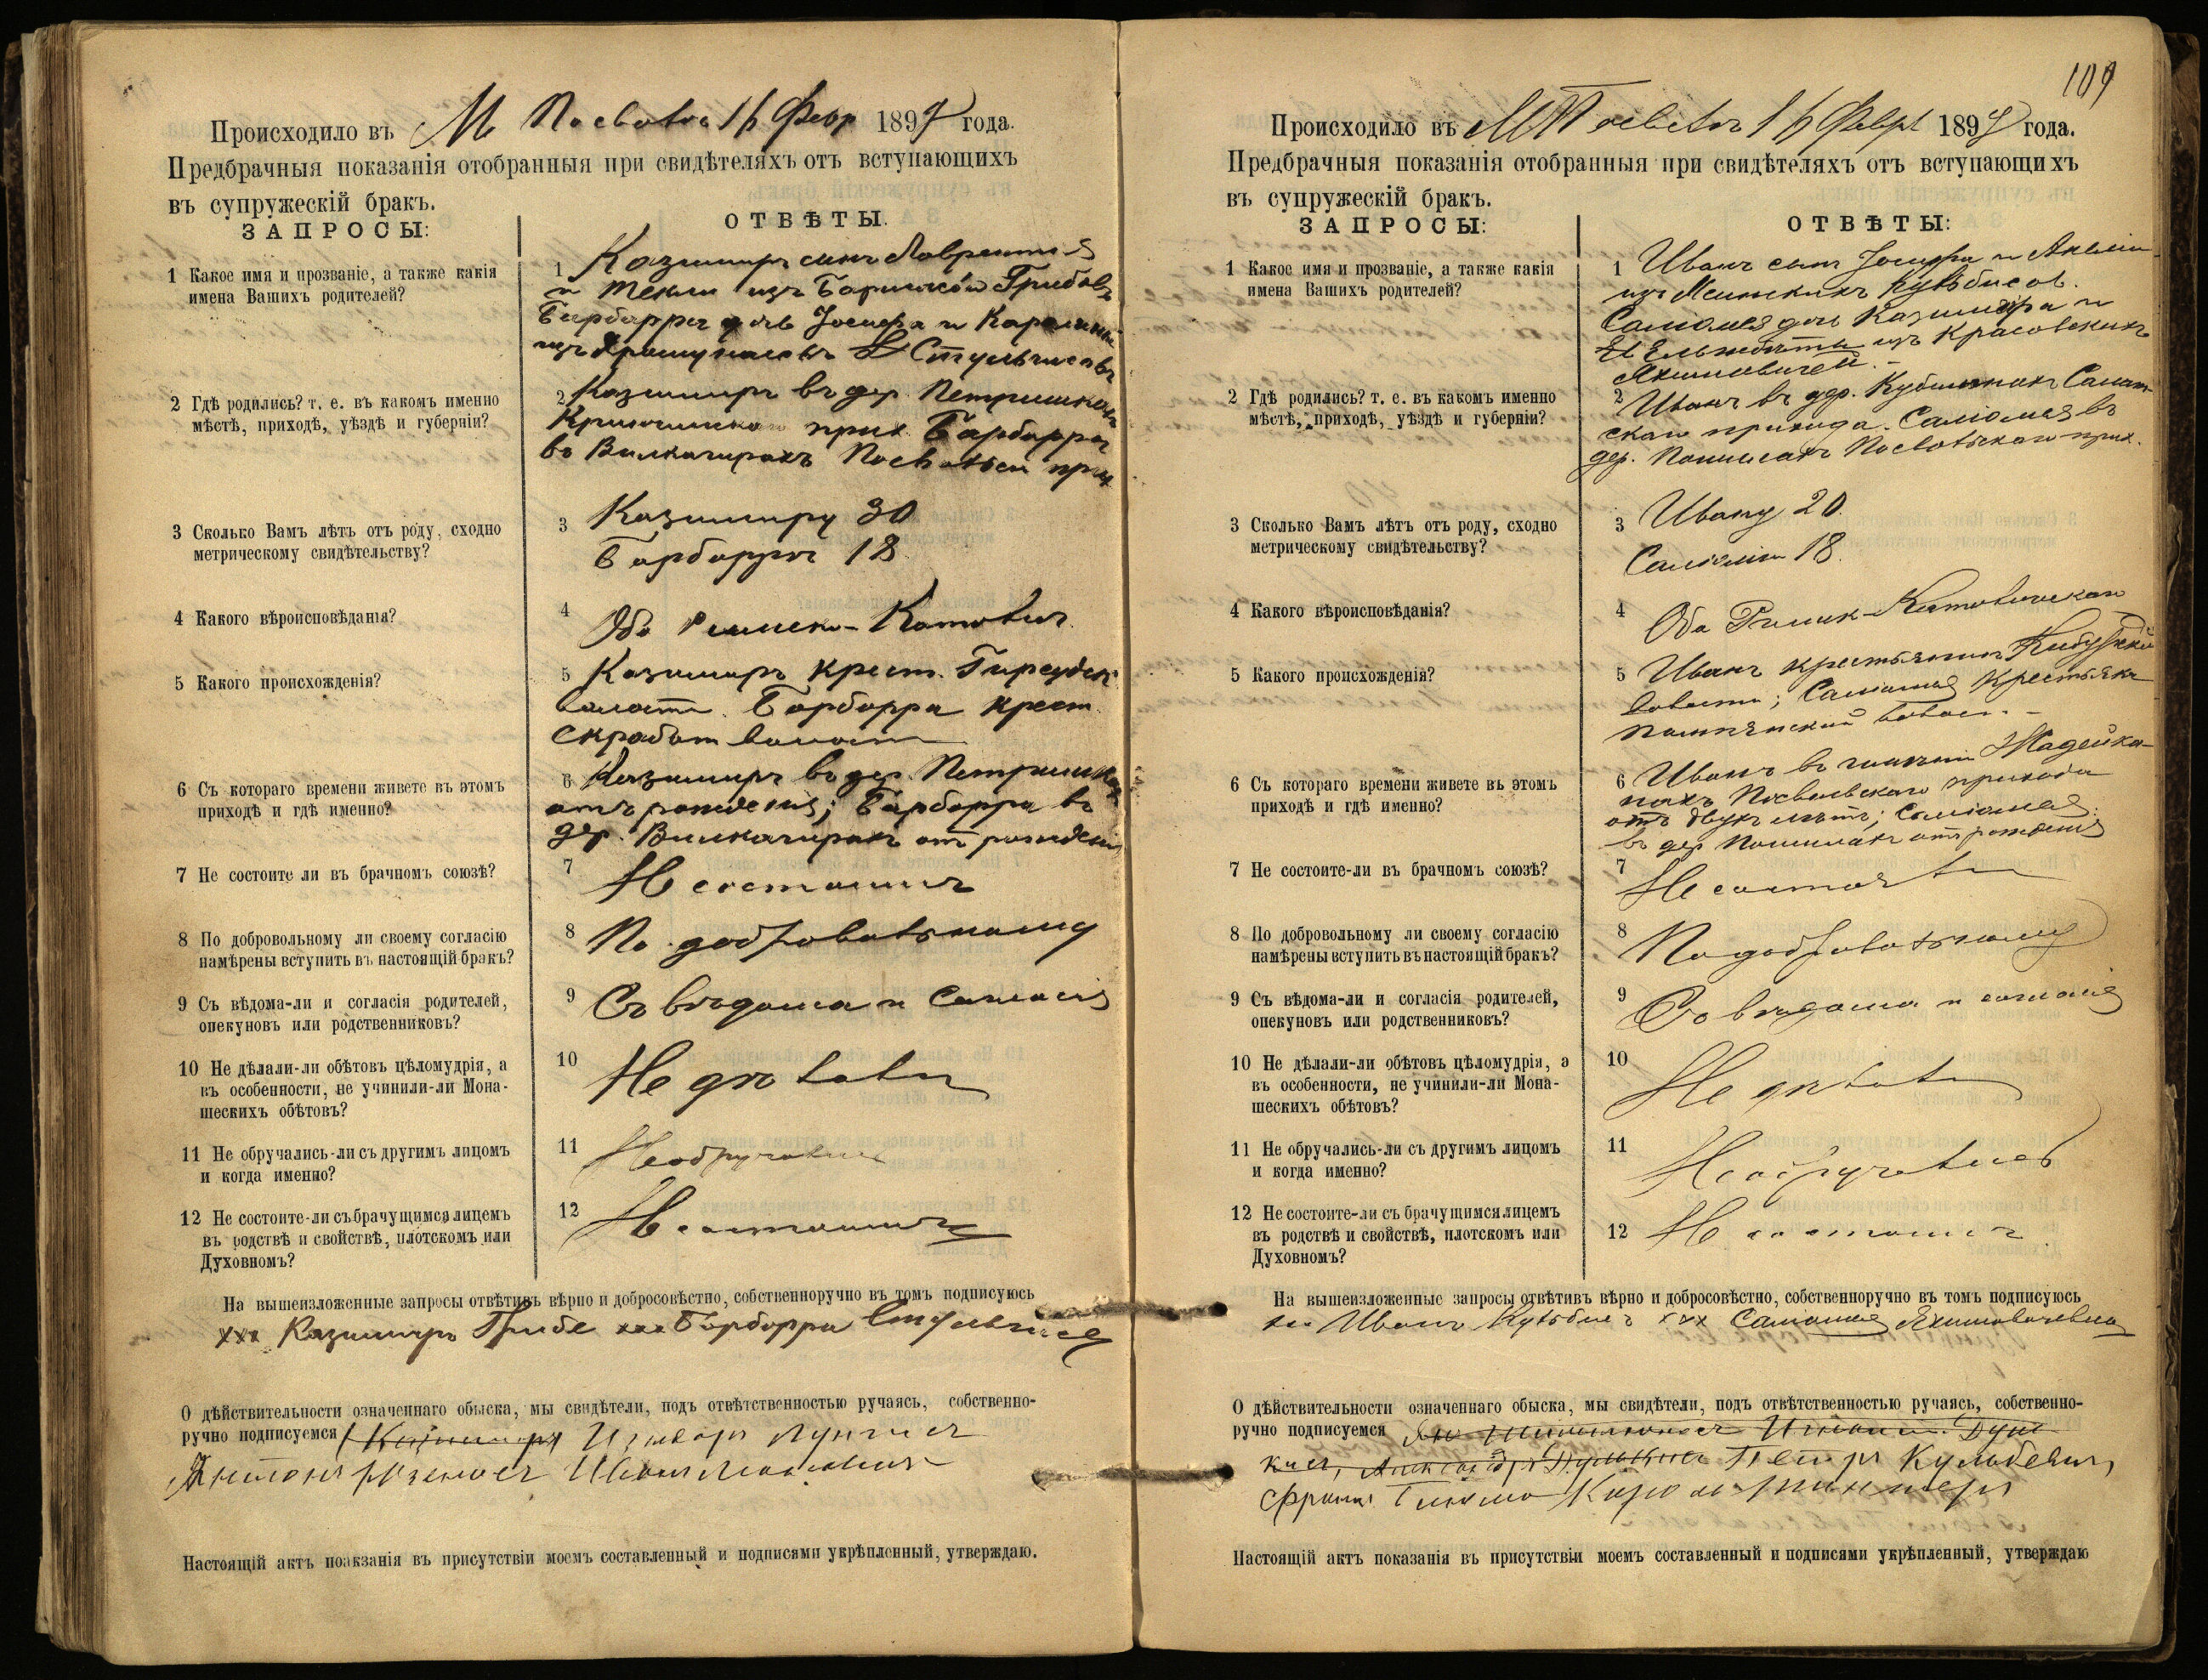 Происходило въ М Посволь 16 Февр 1897 года.
Предбрачныя показанія отобранныя при свидѣтеляхъ отъ вступающихъ
въ супружескій бракъ.
ЗАПРОСЫ:
ОТВѢТЫ.
1 Какое имя и прозваніе, а также какія
имена Вашихъ родителей?
1 Казимиръ сынъ Лаврентія
и Текли изъ
Барбарра дочь Іосифа и Каролины
изъ
2 Гдѣ родились? т. е. въ какомъ именно
мѣстѣ, приходѣ, уѣздѣ и губерніи?
2 Казимиръ въ дер. Петришкахъ
прих Барбарра
въ Вилкагирахъ Посвольск прих
3 Сколько Вамъ лѣтъ отъ роду, сходно
метрическому свидѣтельству?
3 Казимиру 30
Барбаррѣ 18
4 Какого вѣроисповѣданія?
4 Оба Римско-Католич.
5 Какого происхожденія?
5 Казимиръ крест. Гирсудск
волости. Барбарра крест.
Скработ волости
6 Съ котораго времени живете въ этомъ
приходѣ и гдѣ именно?
6 Казимиръ въ дер. Петришкахъ
отъ рожденія; Барбарра въ
дер. Вилкагирахъ отъ рожденія
7 Не состоите ли въ брачномъ союзѣ?
7 Не состоимъ
8 По добровольному ли своему согласію
намѣрены вступить въ настоящій бракъ?
8 По добровольному
9 Съ вѣдома-ли и согласія родителей,
опекуновъ или родственниковъ?
9 Съ вѣдома и согласія
10 Не дѣлали-ли обѣтовъ цѣломудрія, а
къ особенности, не учинили-ли Мона-
шескихъ обѣтовъ?
10 Не дѣлали
11 Не обручались-ли съ другимъ лицомъ
и когда именно?
11 Не обручались
12 Не состоите-ли съ брачущимся лицемъ
въ родствѣ и свойствѣ, плотскомъ или
Духовномъ?
12 Не состоимъ
На вышеизложенные запросы отвѣтивъ вѣрно и добросовѣстно, собственноручно въ томъ подписуюсь
ххх Казимиръ Грибе ххх Барбарра
О дѣйствительности означеннаго обыска, мы свидѣтели, подъ отвѣтственностью ручаясь, собственно-
ручно подписуемся Казимиръ
Антонъ Иванъ
Настоящій актъ поакзанія въ присутствіи моемъ составленный и подписями укрѣпленный, утверждаю.
109
Происходило въ М Посволь 16 Февр 1897 года.
Предбрачныя показанія отобранныя при свидѣтеляхъ отъ вступающихъ
въ супружескій бракъ.
ЗАПРОСЫ:
ОТВѢТЫ:
1 Какое имя и прозваніе, а также какія
имена Вашихъ родителей?
1 Иванъ сынъ Іосифа и
изъ
Саломея дочь Казимира и
Ельжбеты изъ Красовскихъ
2 Гдѣ родились? т. е. въ какомъ именно
мѣстѣ, приходѣ, уѣздѣ и губерніи?
2 Иванъ въ дер.
скаго прихода. Саломея въ
дер. Посвольскаго прих.
3 Сколько Вамъ лѣтъ отъ роду, сходно
метрическому свидѣтельству?
3 Ивану 20.
Саломеи 18.
4 Какого вѣроисповѣданія?
4 Оба Римск-Католическаго
5 Какого происхожденія?
5 Иванъ крестьянинъ
волости; Саломея крестьянка
волос.
6 Съ котораго времени живете въ этомъ
приходѣ и гдѣ именно?
6 Иванъ въ имѣніи Жадейка-
няхъ Посвольскаго прихода
отъ двухъ лѣтъ; Саломея
въ дер отъ рожденія
7 Не состоите-ли въ брачномъ союзѣ?
7 Не состояли
8 По добровольному ли своему согласію
намѣрены вступить въ настоящій бракъ?
8 По добровольному
9 Съ вѣдома-ли и согласія родителей,
опекуновъ или родственниковъ?
9 Со вѣдома и согласія
10 Не дѣлали-ли обѣтовъ цѣломудрія, а
въ особенности, не учинили-ли Мона-
шескихъ обѣтовъ?
10 Не дѣлали
11 Не обручались-ли съ другимъ лицомъ
и когда именно?
11 Не обручались
12 Не состоите-ли съ брачущимся лицемъ
въ родствѣ и свойствѣ, плотскомъ или
Духовномъ?
12 Не состоимъ
На вышеизложенные запросы отвѣтивъ вѣрно и добросовѣстно, собственноручно въ томъ подписуюсь
ххх Иванъ ххх Саломея
О дѣйствительности означеннаго обыска, мы свидѣтели, подъ отвѣтственностью ручаясь, собственно-
ручно подписуемся
Александръ Петръ
Настоящій актъ показанія въ присутствіи моемъ составленный и подписями укрѣпленный, утверждаю